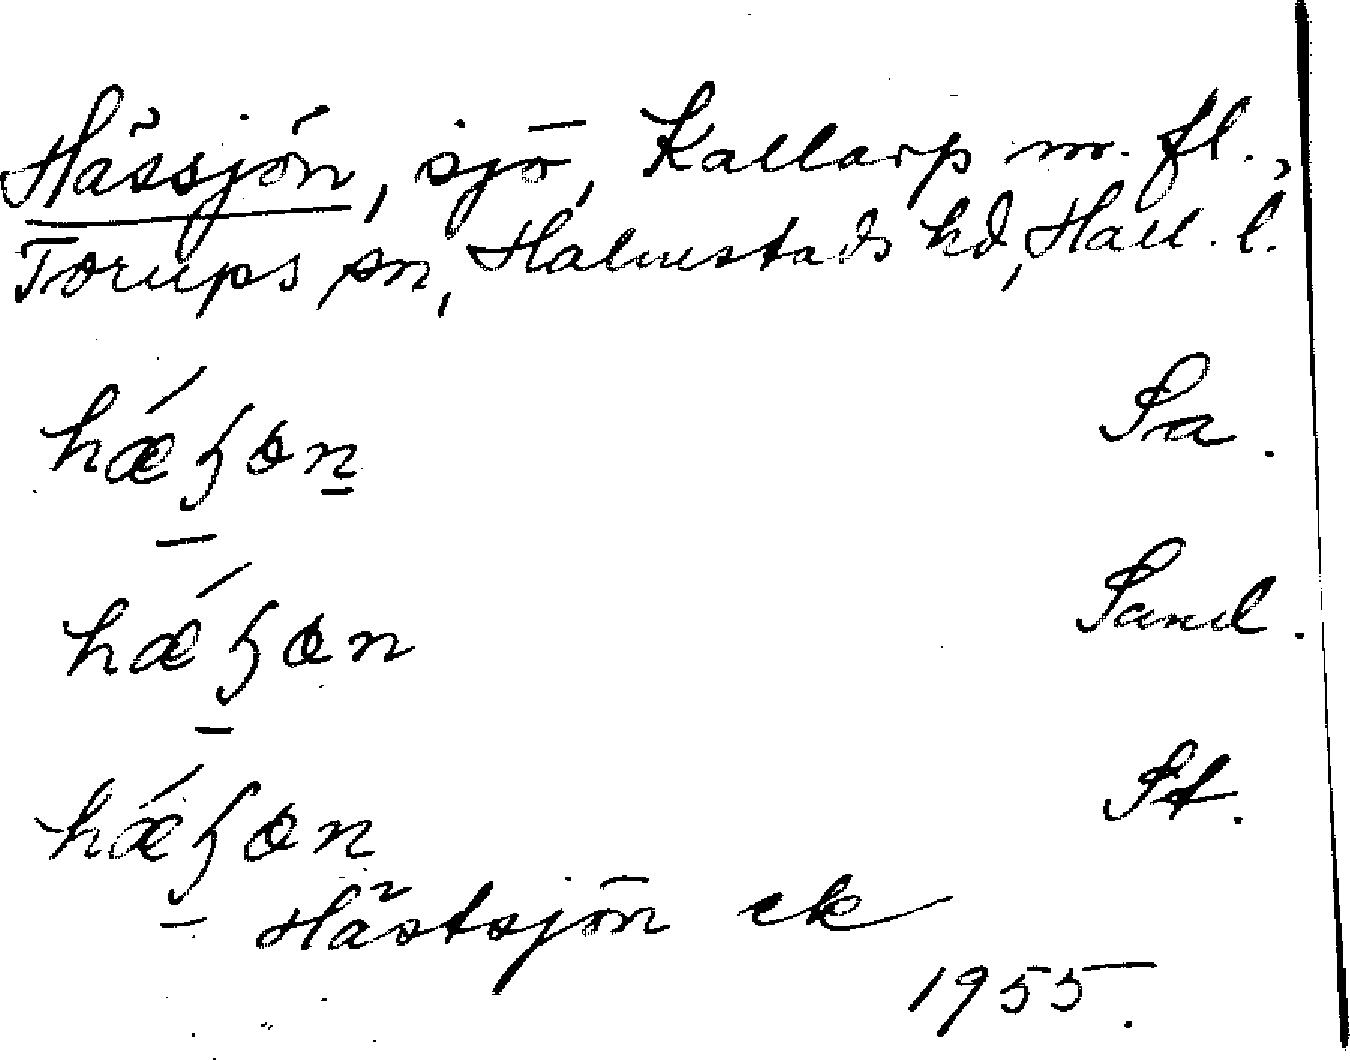 Hässjön, sjö, Kallarp m. fl.,
Torups sn, Halmstads hd, Hall. l.
hǽɧɵn Sa.
hǽɧɵn Sand.
hǽɧɵn St.
Hästsjön ek
1955.